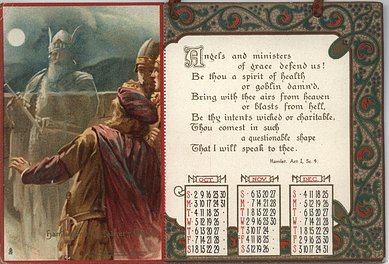 Angels and ministers
of grace defend us!
Be thou a spirit of health
or goblin damn'd,
Bring with thee airs from heaven
or blasts from hell,
Be thy intents wicked or charitable,
Thou comest in such
a questionable shape
That I will speak to thee.
Hamlet. Act I, Sc. 4.
OCT. NOV. DEC.
S · 2 9 16 23 30
M · 3 10 17 24 31
T · 4 11 18 25 ·
W · 5 12 19 26 ·
T · 6 13 20 27 ·
F · 7 14 21 28 ·
S 1 8 15 22 29 ·
S · 6 13 20 27
M · 7 14 21 28
T 1 8 15 22 29
W 2 9 16 23 30
T 3 10 17 24 ·
F 4 11 18 25 ·
S 5 12 19 26 ·
S · 4 11 18 25
M · 5 12 19 26
T · 6 13 20 27
W · 7 14 21 28
T 1 8 15 22 29
F 2 9 16 23 30
S 3 10 17 24 31